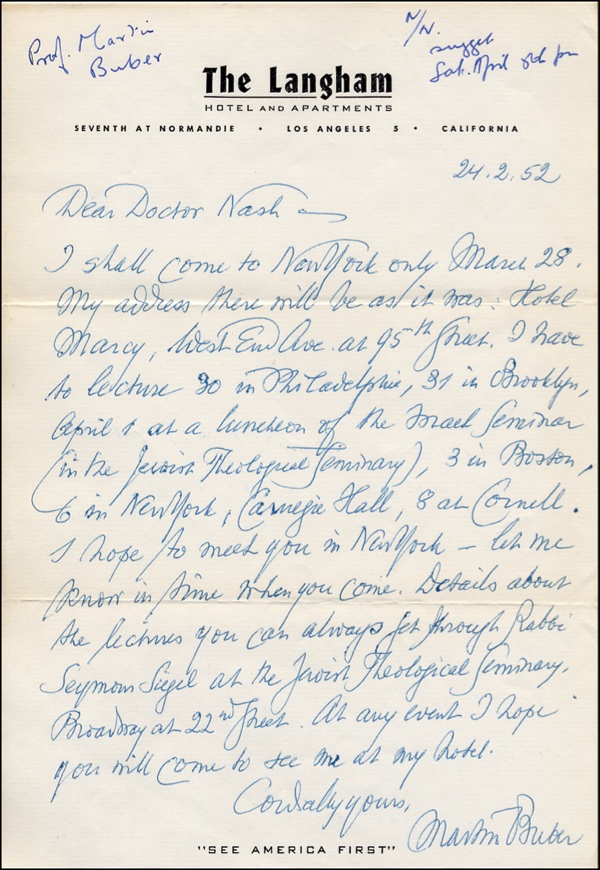 Prof. Martin
Buber
N/N.
suggest
Sat. April pm
The Langham
HOTEL AND APARTMENTS
SEVENTH AT NORMANDIE • LOS ANGELES 5 • CALIFORNIA
24.2.52
Dear Doctor Nash
I shall come to New York only March 28.
My address there will be as it was: Hotel
Marcy, West End Ave. at 95th Street. I have
to lecture 30 in Philadelphia, 31 in Brooklyn,
April 1 at a luncheon of the Israel Seminar
(in the Jewish Theological Seminary), 3 in Boston,
6 in New York, Carnegie Hall, 8 at Cornell.
I hope to meet you in New York – let me
know in time when you come. Details about
the lectures you can always get through Rabbi
Seymour Siegel at the Jewish Theological Seminary,
Broadway at 22nd Street. At any event I hope
you will come to see me at my hotel.
Cordially yours,
Martin Buber
"SEE AMERICA FIRST"